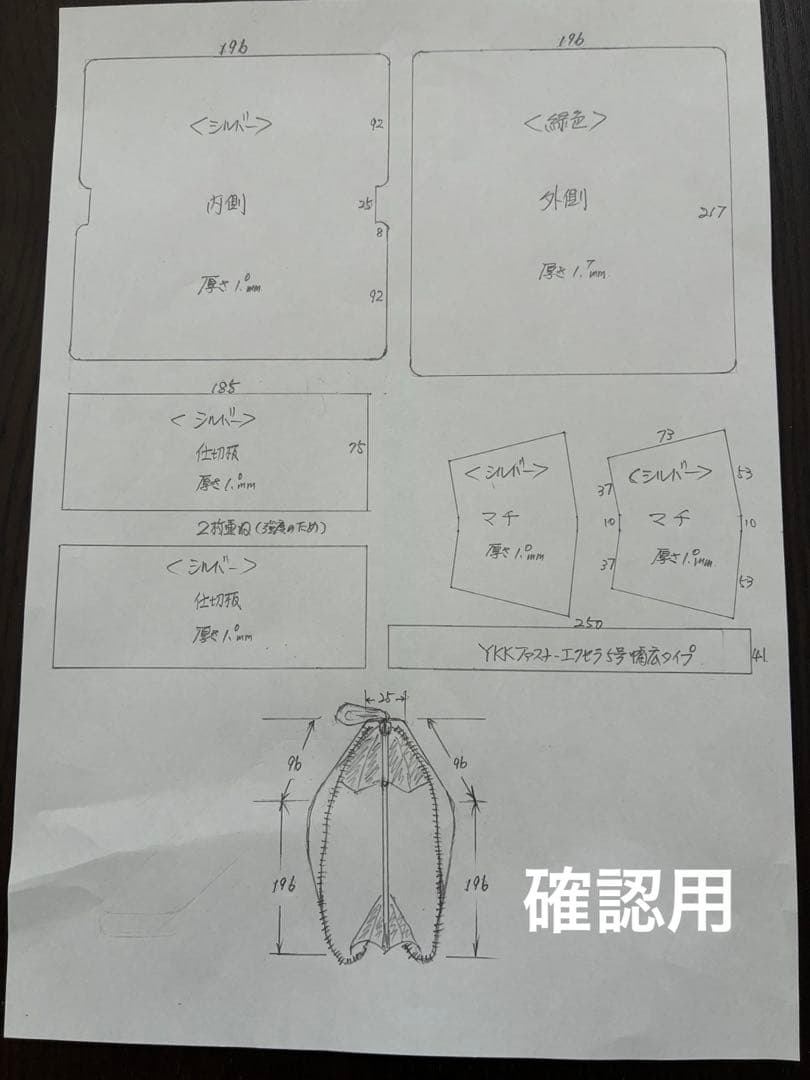 196
<シルバー>
92
内側
25
8
厚さ1.0mm
92
196
<緑色>
外側
217
厚さ1.7mm
185
<シルバー>
仕切板
75
厚さ1.0mm
2枚重ね(強度のため)
<シルバー>
仕切板
厚さ1.0mm
<シルバー>
マチ
厚さ1.0mm
73
<シルバー>
37
53
10
マチ
10
厚さ1.0mm
37
53
250
YKKファスナーエクセラ5号幅広タイプ
41
25
96
96
196
196
確認用